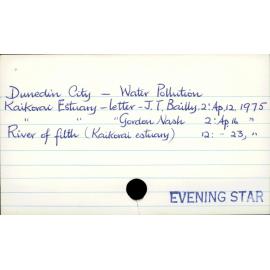 Dunedin City - Water Pollution
Kaikorai Estuary - letter - J.T. Bailly. 2: Ap. 12. 1975
" " " Gordon Nash 2: Ap 16 "
River of filth (Kaikorai estuary) 12: - 23, "
EVENING STAR